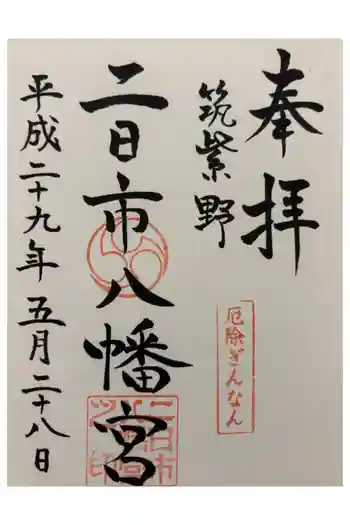 奉拝
筑紫野
厄除ぎんなん
二日市八幡宮
二日市八幡宮之印
平成二十九年五月二十八日